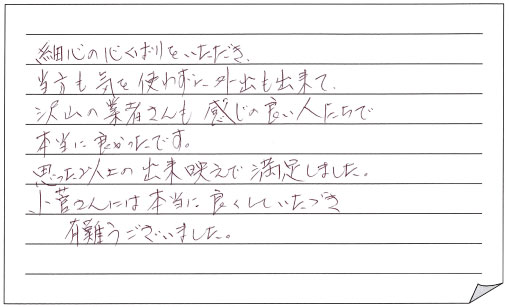 細心の心くばりをいただき、
当方も気を使わずに外出も出来て、
沢山の業者さんも感じの良い人たちで
本当に良かったです。
思った以上の出来映えで満足しました。
小菅さんには本当に良くしていただき
有難うございました。